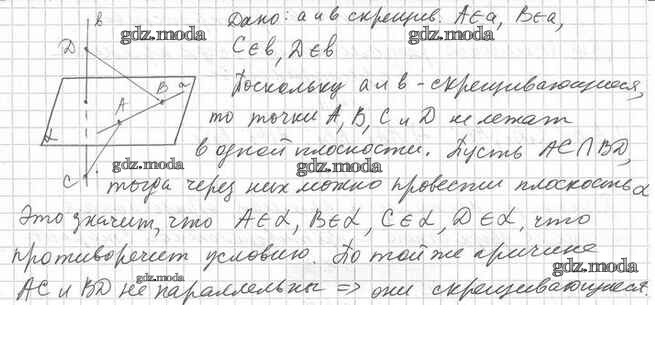 в
D
gdz.moda
Дано: а и в скрещив. A∈a, B∈a,
gdz.moda
C∈b, D∈b
Поскольку а и в - скрещивающиеся,
a
B
A
α
то точки A, B, C и D не лежат
gdz.moda
в одной плоскости. Пусть AC∩BD,
gdz.moda
gdz.moda
C
тогда через них можно провести плоскость α
Это значит, что A∈α, B∈α, C∈α, D∈α, что
противоречит условию. По той же причине
gdz.moda
gdz.moda
AC и BD не параллельны => они скрещивающиеся.